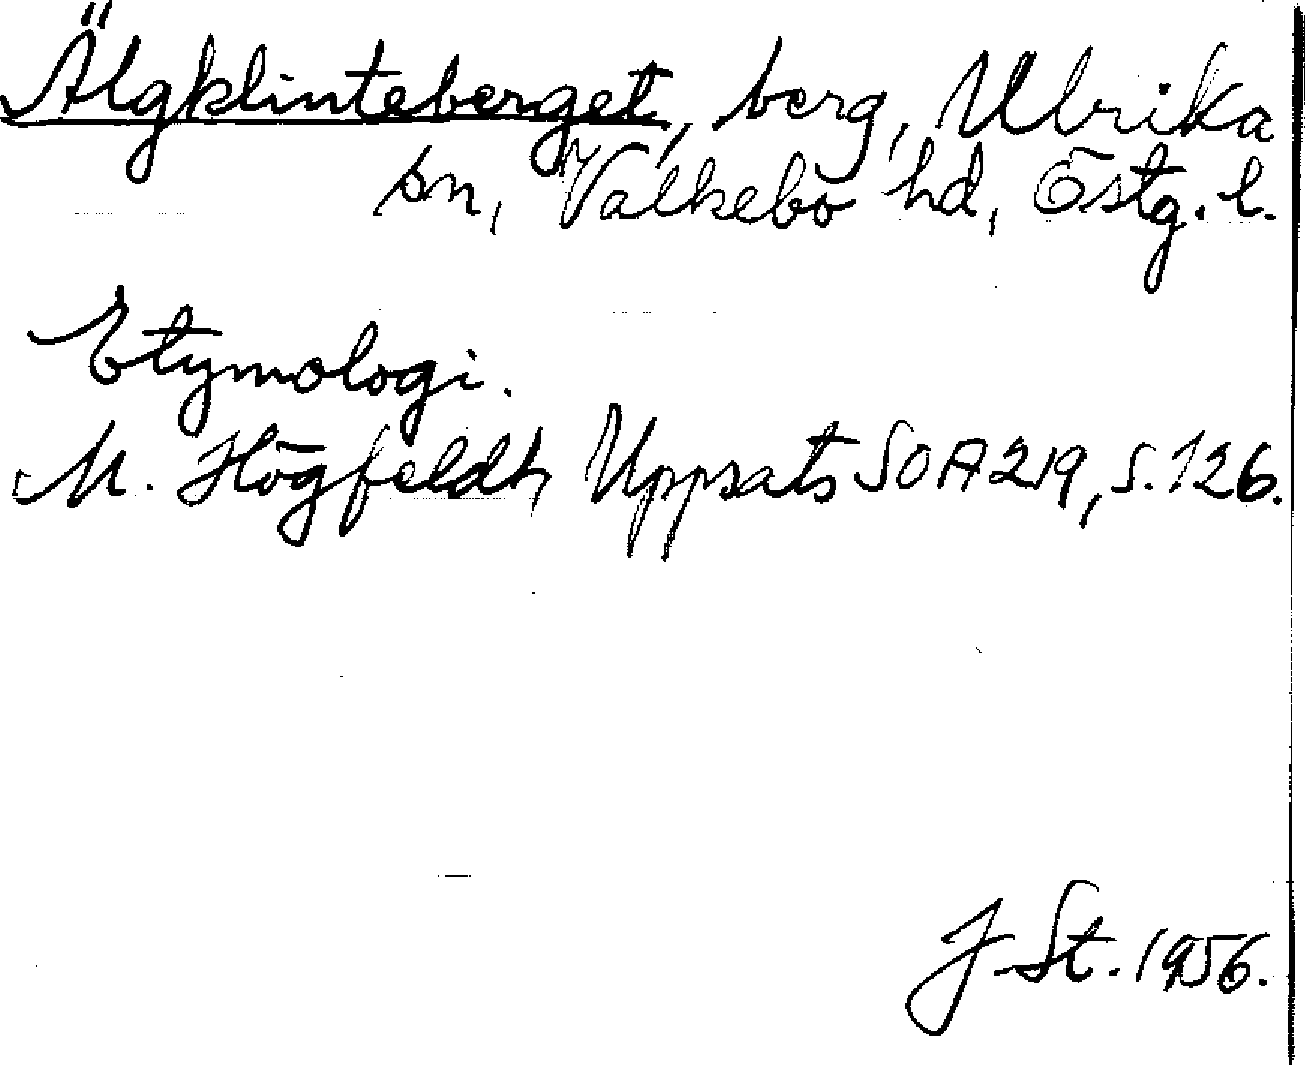 Älgklinteberget, berg, Ulrika
sn, Valkebo hd, Östg. l.
Etymologi.
M. Högfeldt, Uppsats SOA 219, s. 126.
J. St. 1956.